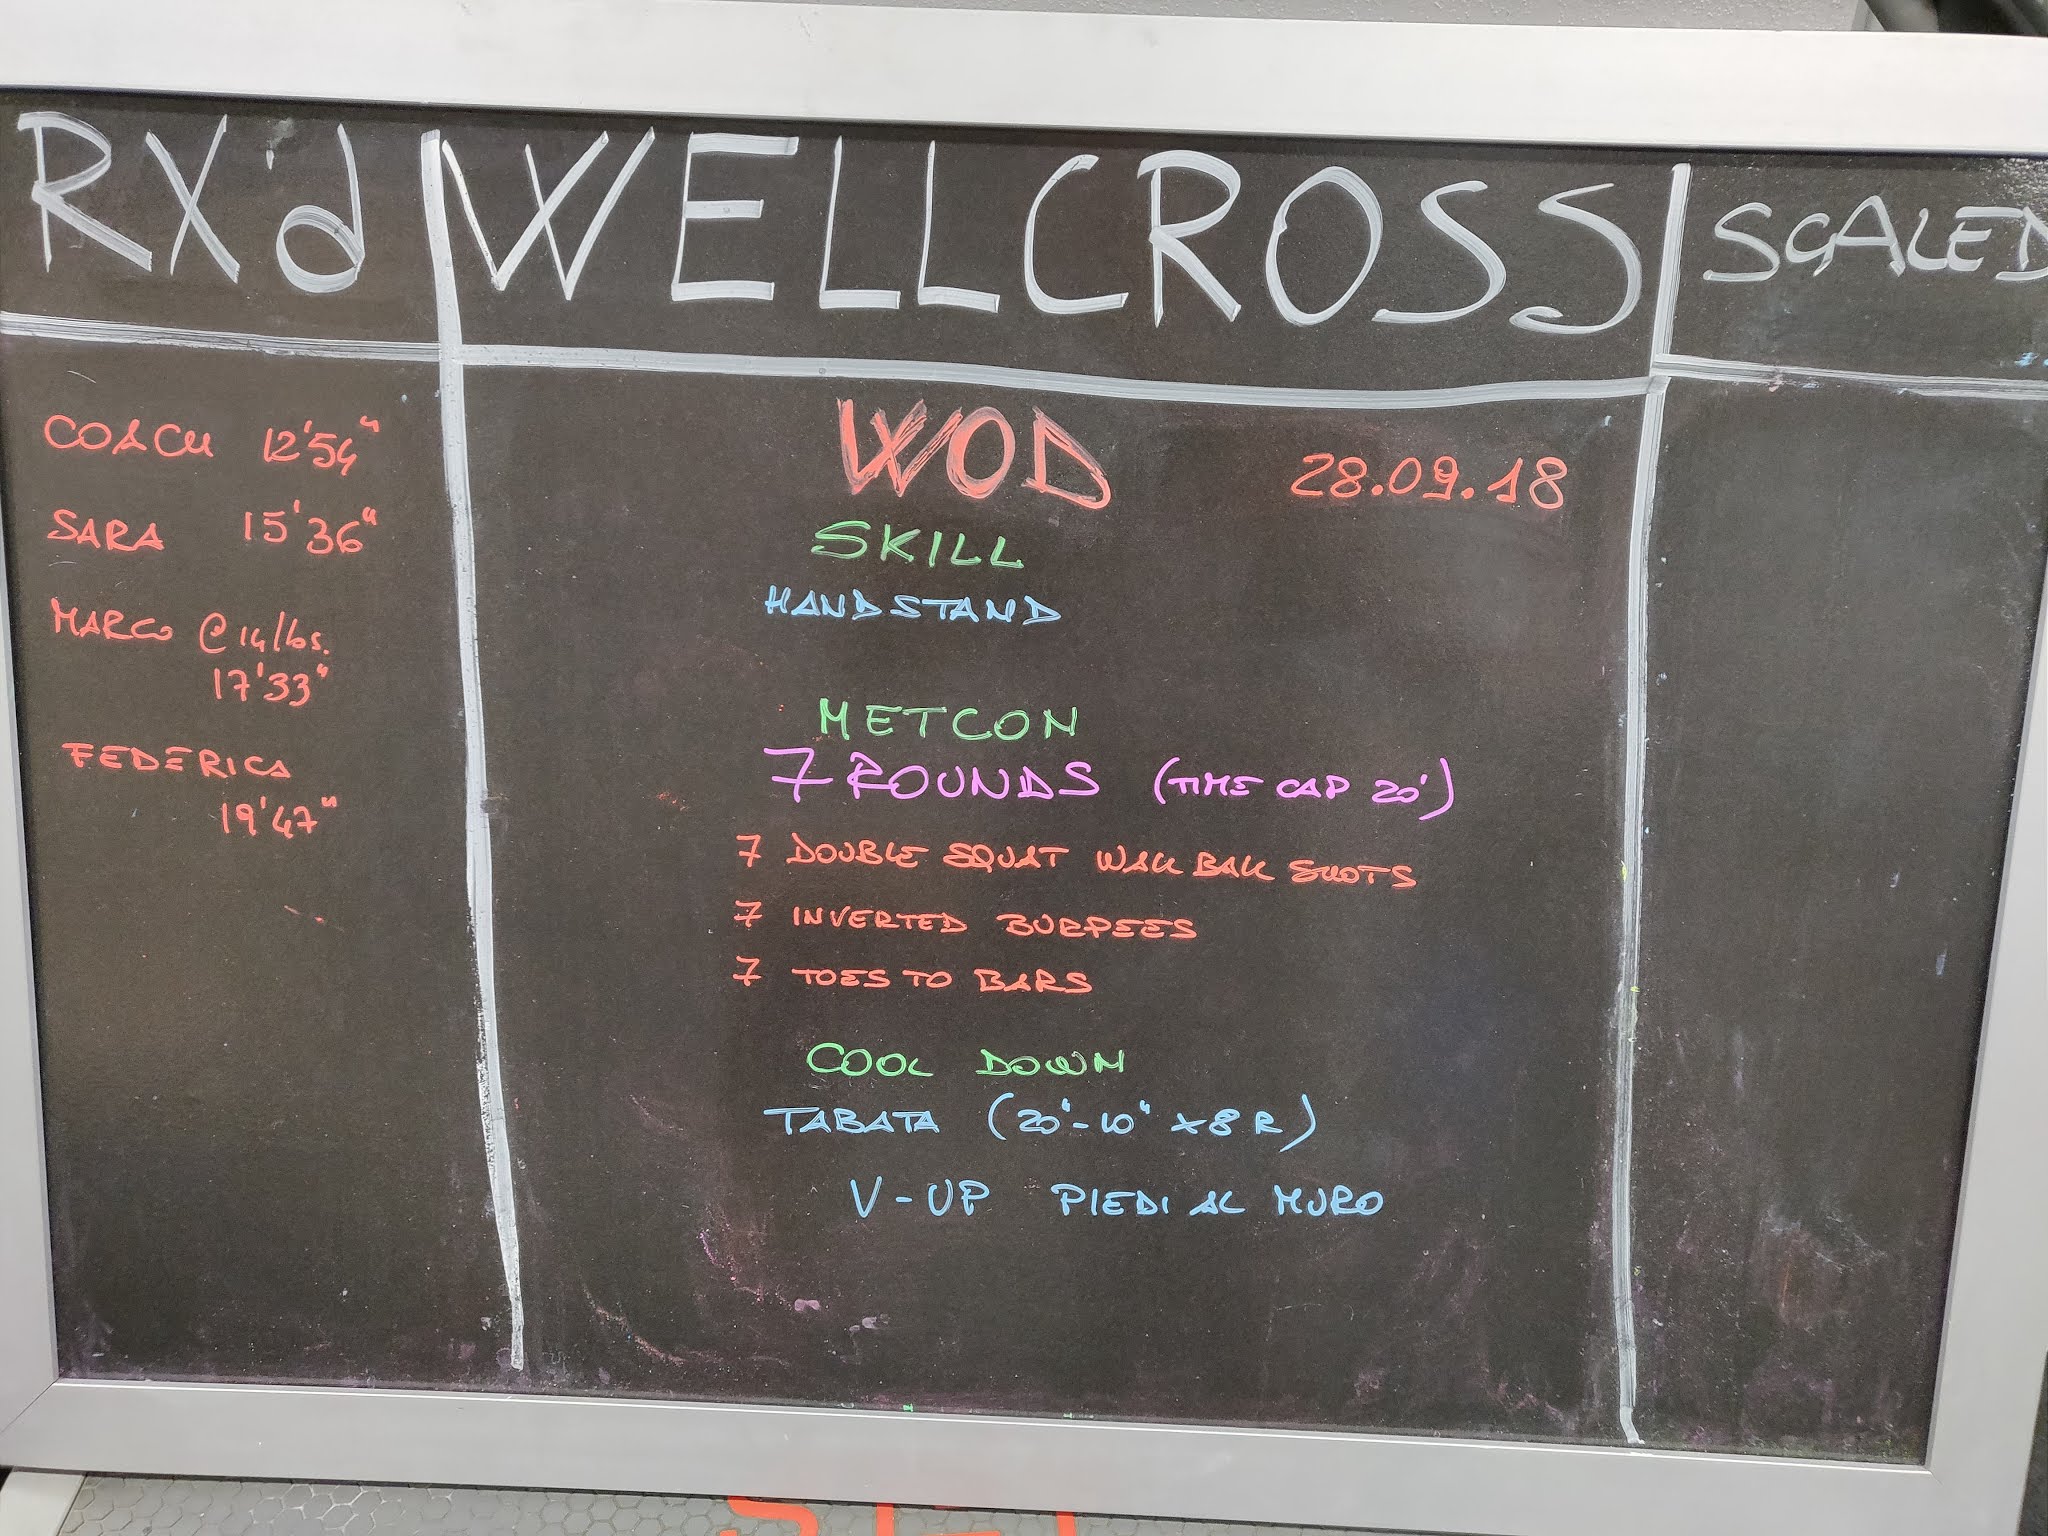 RX'd
WELLCROSS
SCALED
COACH 12'54"
SARA 15'36"
MARCO @ 14 lbs.
17'33"
FEDERICA
19'47"
WOD 28.09.18
SKILL
HANDSTAND
METCON
7 ROUNDS (TIME CAP 20')
7 DOUBLE SQUAT WALL BALL SHOTS
7 INVERTED BURPEES
7 TOES TO BARS
COOL DOWN
TABATA (20"-10" x8 R)
V-UP PIEDI AL MURO